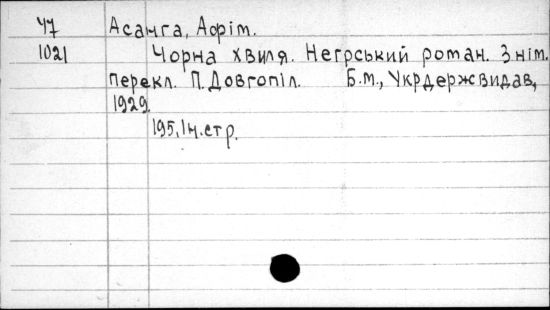 Ч7 Асанга, Афрім.
1021 Чорна хвиля. Негрський роман. З нім.
перекл. П. Довгопіл. Б.м., Укрдержвидав,
1929.
195, 1н.стр.